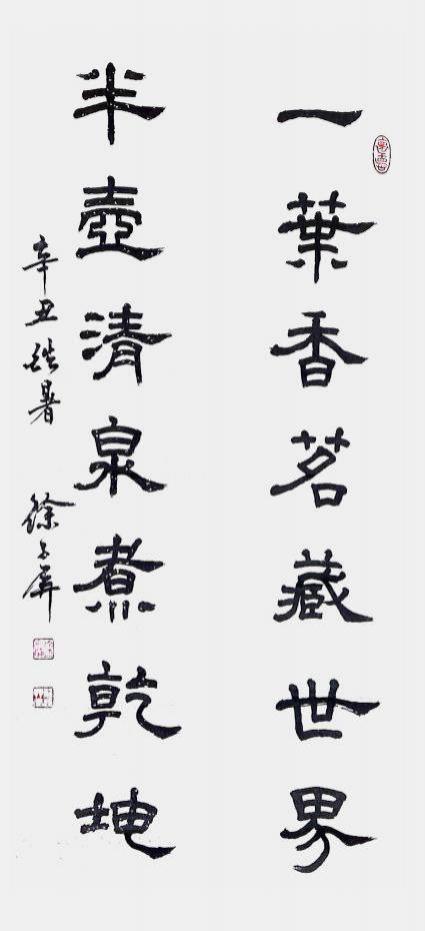 一葉香茗藏世界
半壺清泉煮乾坤
辛丑酷暑 徐